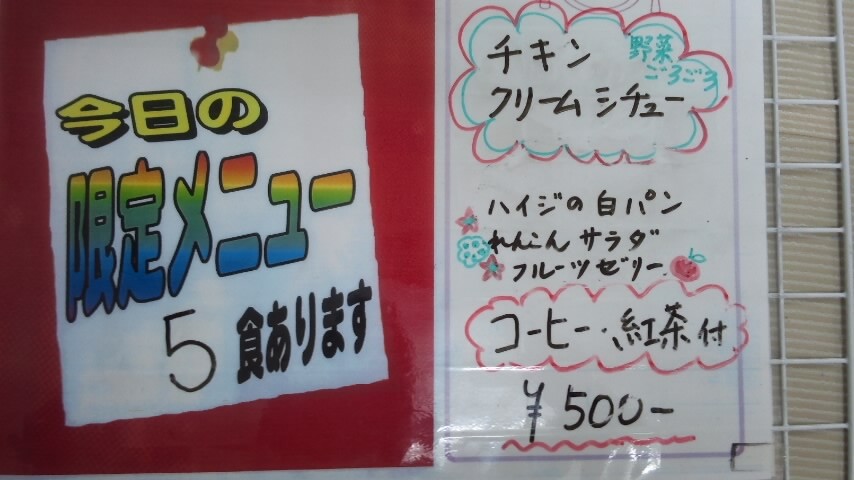 今日の
限定メニュー
5食あります
チキン
野菜
ごろごろ
クリームシチュー
ハイジの白パン
れんこんサラダ
フルーツゼリー
コーヒー・紅茶付
¥500-